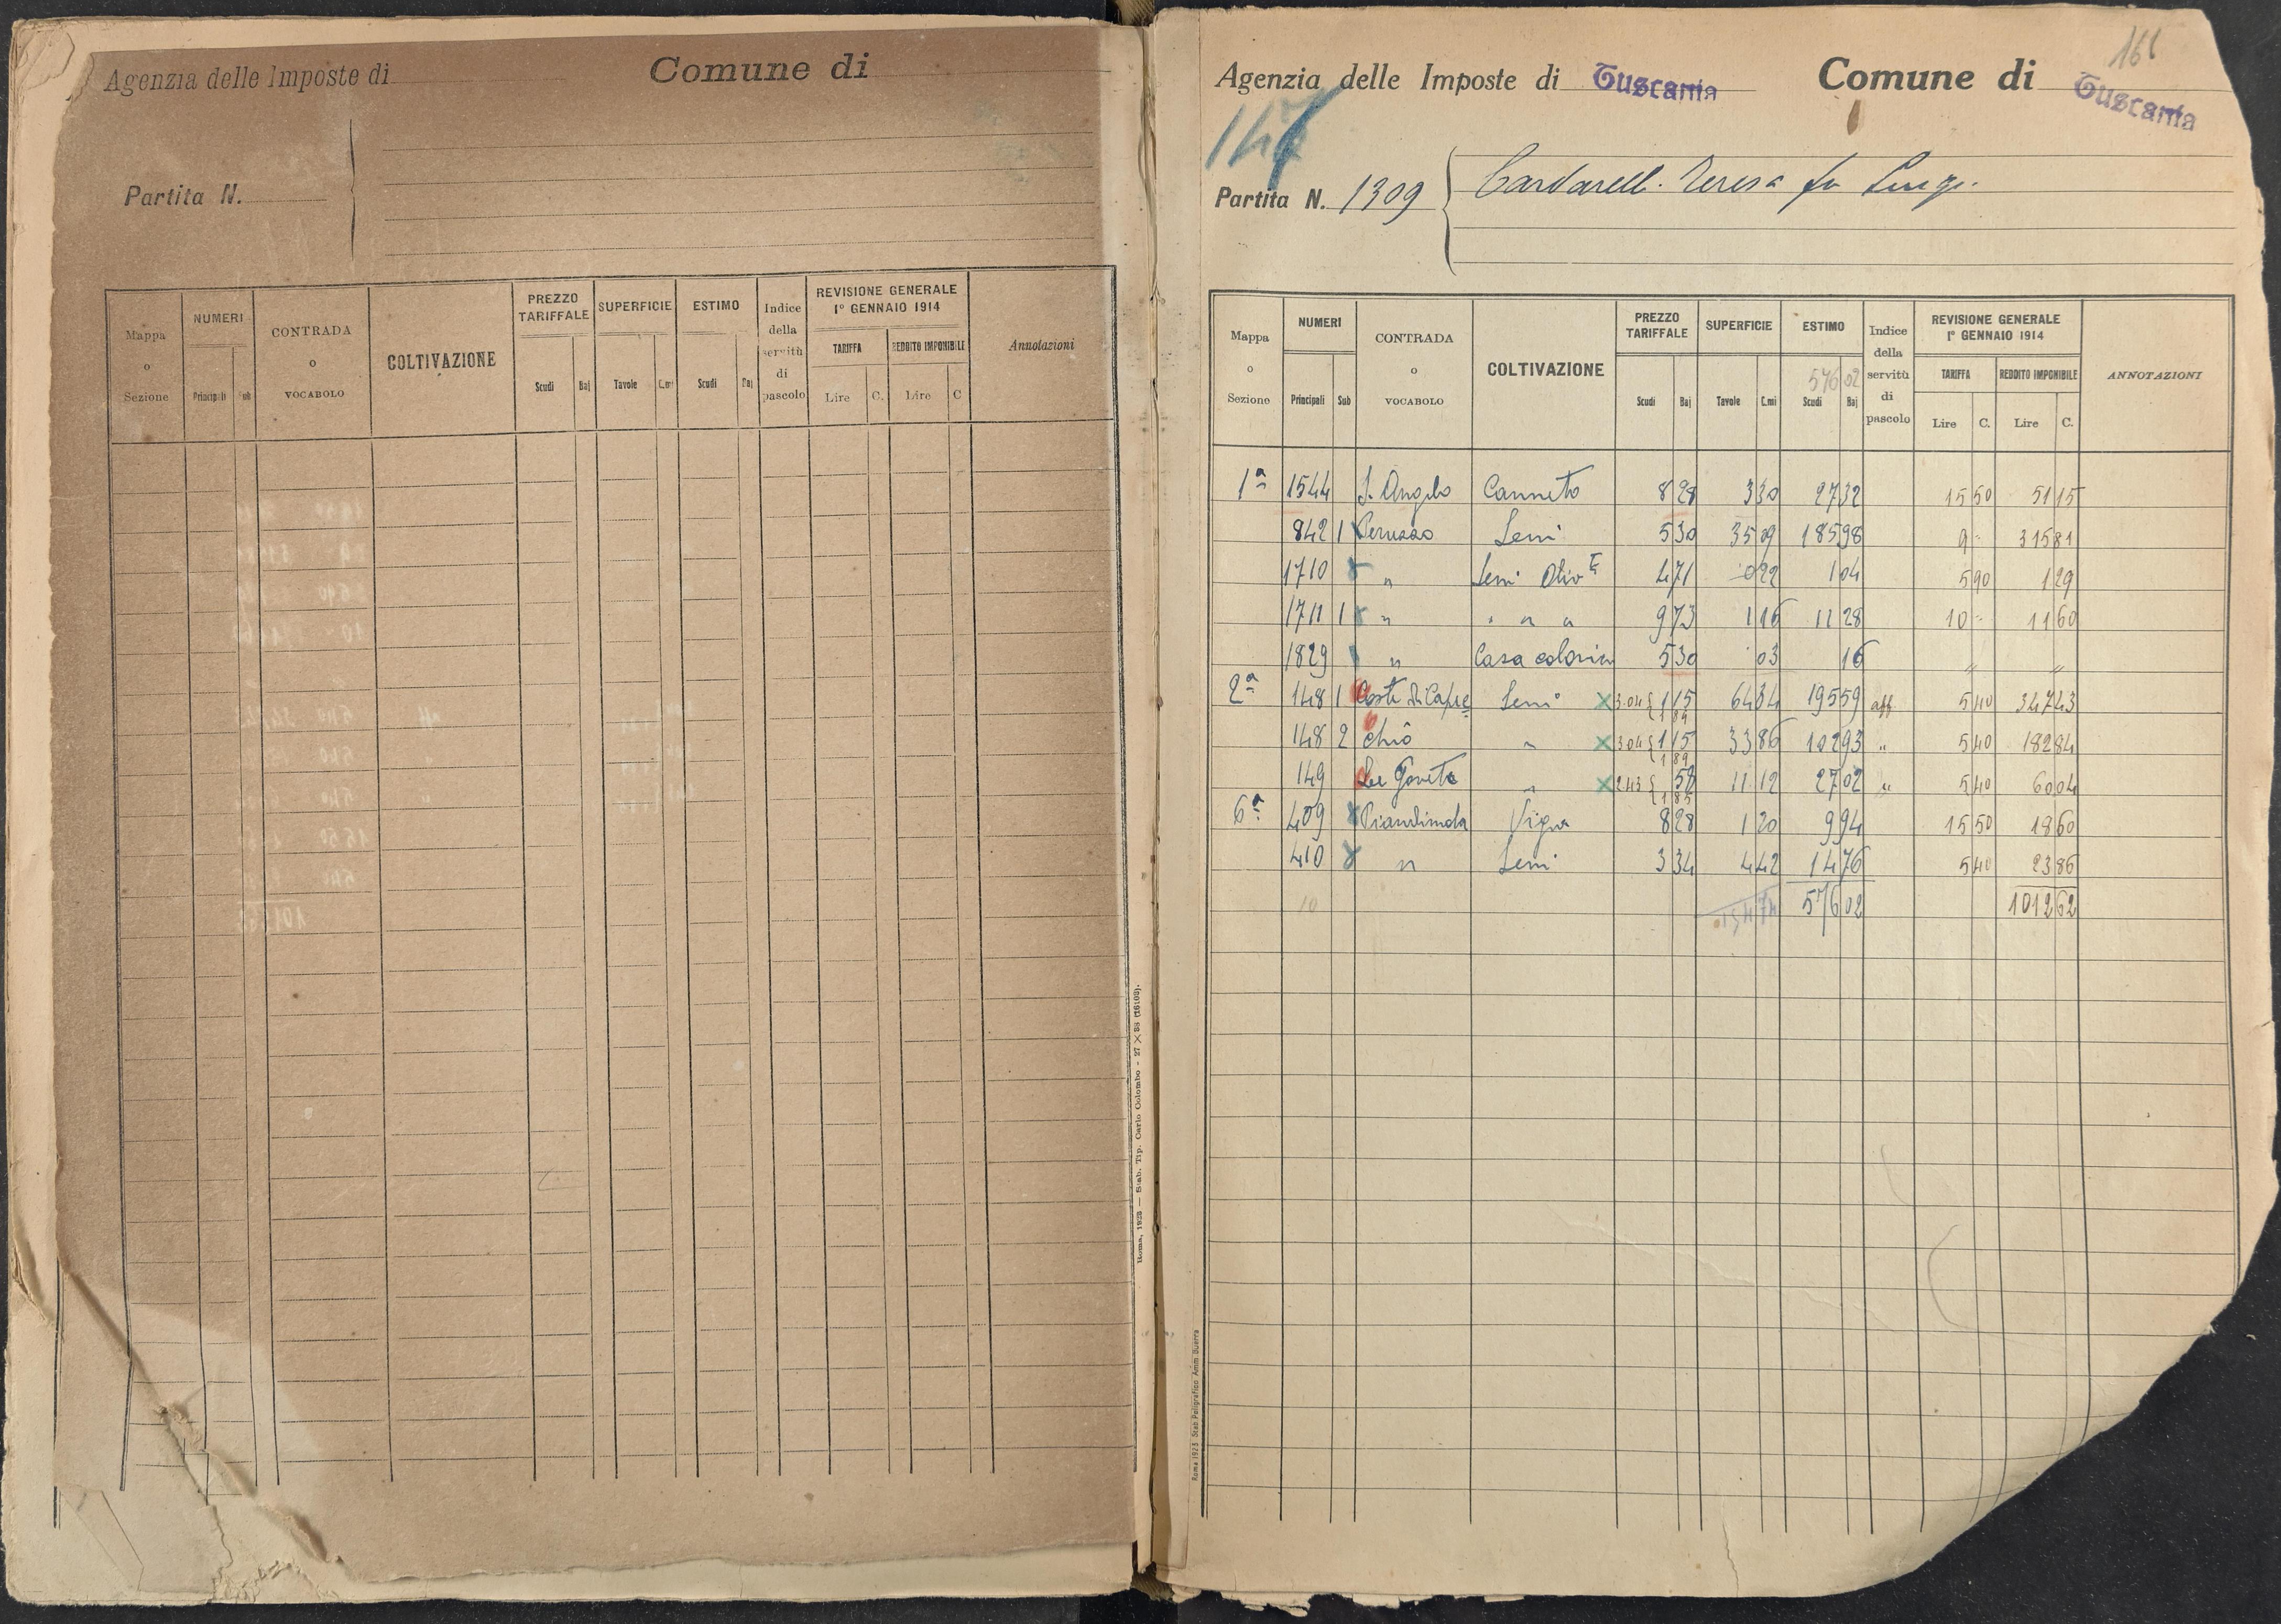 Agenzia delle Imposte di
Comune di
Partita N.
Mappa o Sezione
NUMERI
Principali
Sub
CONTRADA o VOCABOLO
COLTIVAZIONE
PREZZO TARIFFALE
Scudi
Baj
SUPERFICIE
Tavole
C.mi
ESTIMO
Scudi
Baj
Indice della servitù di pascolo
REVISIONE GENERALE
1° GENNAIO 1914
TARIFFA
REDDITO IMPONIBILE
Lire
C.
Lire
C
Annotazioni
Roma, 1923 — Stab. Tip. Carlo Colombo - 27 X 38 (16103).
Agenzia delle Imposte di Tuscania Comune di Tuscania
Partita N. 1309 Cardarelli Teresa fu Luigi
Mappa o Sezione
NUMERI
Principali
Sub
CONTRADA o VOCABOLO
COLTIVAZIONE
PREZZO TARIFFALE
Scudi
Baj
SUPERFICIE
Tavole
C.mi
ESTIMO
576 02
Scudi
Baj
Indice della servitù di pascolo
REVISIONE GENERALE
1° GENNAIO 1914
TARIFFA
REDDITO IMPONIBILE
Lire
C.
Lire
C.
ANNOTAZIONI
1ª 1544 S. Angelo Canneto 8 28 3 30 27 32 15 50 51 15
842 1 Peruzzo Semi 5 30 35 09 185 98 9 - 315 81
1710 " Semi Olivte 4 71 0 22 1 04 5 90 1 29
1711 1 " " " " 9 73 1 16 11 28 10 - 11 60
1829 " Casa colonica 5 30 03 16 " "
2ª 148 1 Coste di Capec Semi X 3.04 { 1 15 1 89 64 34 195 59 aff 5 40 347 43
148 2 chio " X 3 04 { 1 15 1 89 33 86 102 93 " 5 40 182 84
149 " X 2 43 { 58 1 85 11 12 27 02 " 5 40 60 04
6ª 409 Piandimola Vigna 8 28 1 20 9 94 15 50 18 60
410 " Semi 3 34 4 42 14 76 5 40 23 86
10 576 02 1012 62
Roma 1923 Stab Poligrafico Amm Guerra